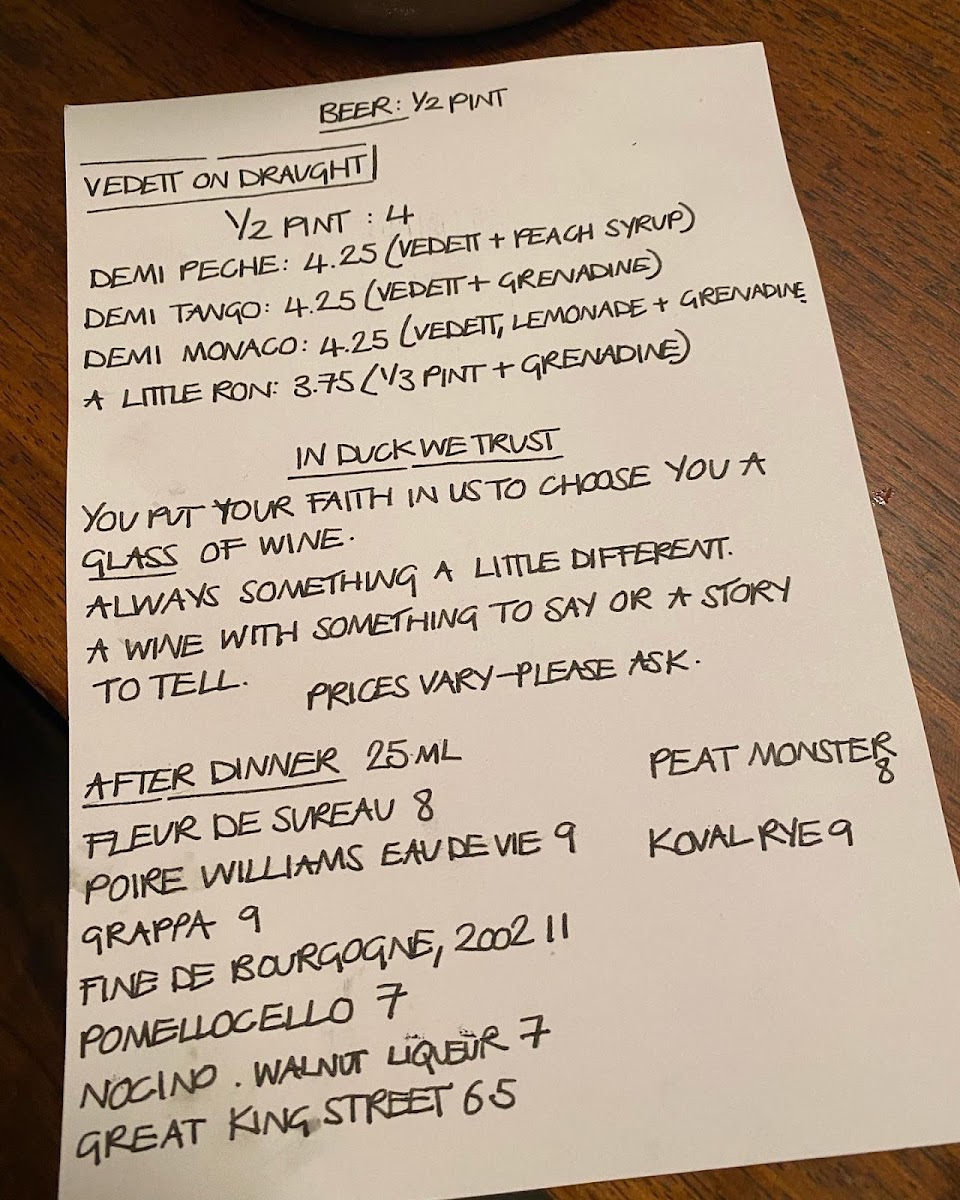 BEER: 1/2 PINT
VEDETT ON DRAUGHT
1/2 PINT : 4
DEMI PECHE: 4.25 (VEDETT + PEACH SYRUP)
DEMI TANGO: 4.25 (VEDETT + GRENADINE)
DEMI MONACO: 4.25 (VEDETT, LEMONADE + GRENADINE
A LITTLE RON: 3.75 (1/3 PINT + GRENADINE)
IN DUCK WE TRUST
YOU PUT YOUR FAITH IN US TO CHOOSE YOU A
GLASS OF WINE.
ALWAYS SOMETHING A LITTLE DIFFERENT.
A WINE WITH SOMETHING TO SAY OR A STORY
TO TELL.
PRICES VARY-PLEASE ASK.
AFTER DINNER 25ML
FLEUR DE SUREAU 8
POIRE WILLIAMS EAU DE VIE 9
GRAPPA 9
FINE DE BOURGOGNE, 2002 11
POMELLOCELLO 7
NOCINO . WALNUT LIQUEUR 7
GREAT KING STREET 6.5
PEAT MONSTER
8
KOVAL RYE 9